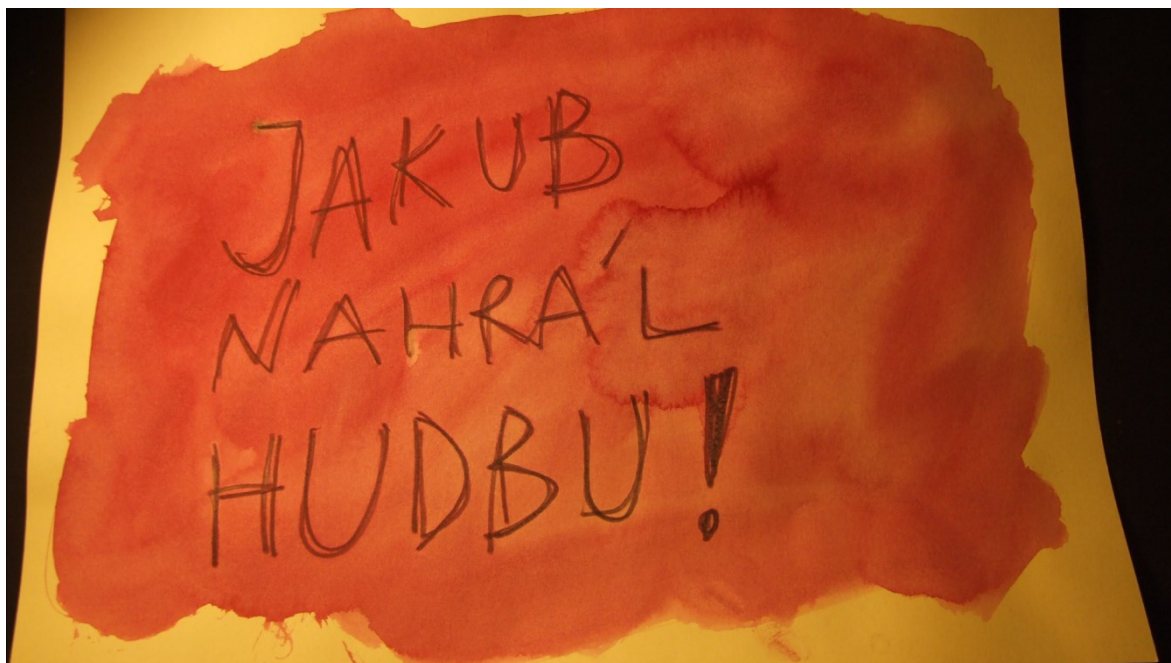 JAKUB
NAHRÁL
HUDBU!